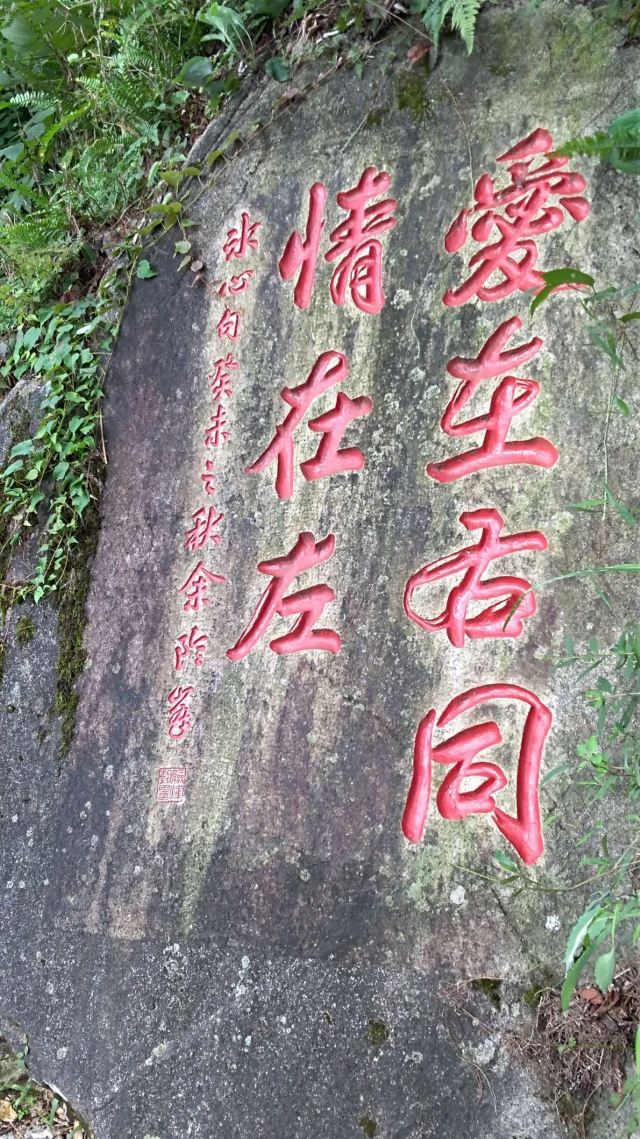 愛在右同
情在左
冰心句癸未之秋余险峯